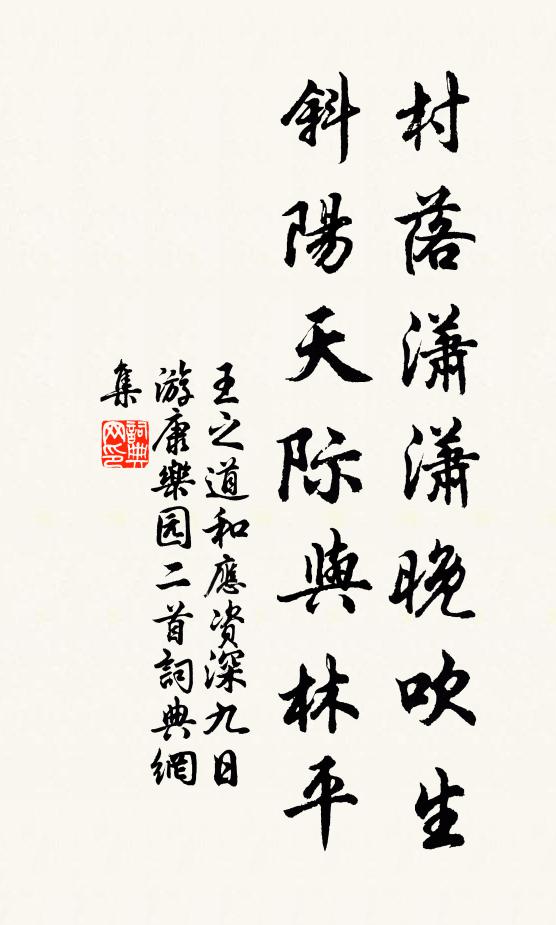 村落瀟瀟晚吹生
斜陽天际與林平
王之道和應资深九日
游康樂园二首詞典網
集
詞典
网印